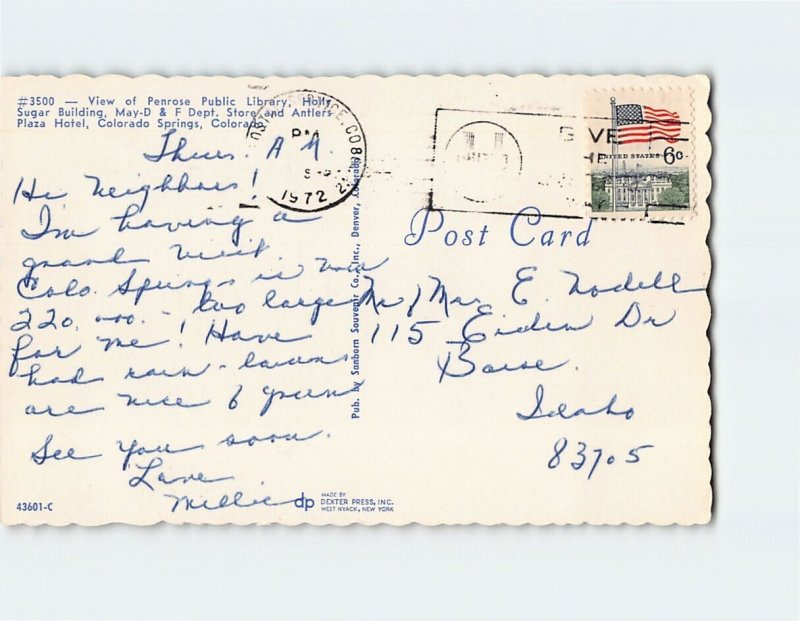 #3500 — View of Penrose Public Library, Holly
Sugar Building, May-D & F Dept. Store and Antlers
Plaza Hotel, Colorado Springs, Colorado
Thurs. A M.
Hi Neighbors!
I'm having a
grand visit
Colo. Springs is now
220,000. - too large
for me! Have
had rain - lawns
are nice & green
See you soon.
Love
Millie
43601-C
dp
MADE BY
DEXTER PRESS, INC.
WEST NYACK, NEW YORK
Pub. by Sanborn Souvenir Co., Inc., Denver, Colorado
PM
1972
GIVE
THE
UNITED STATES 6c
Post Card
Mr / Mrs E. Nodell
115 Eiden Dr
Boise.
Idaho
83705